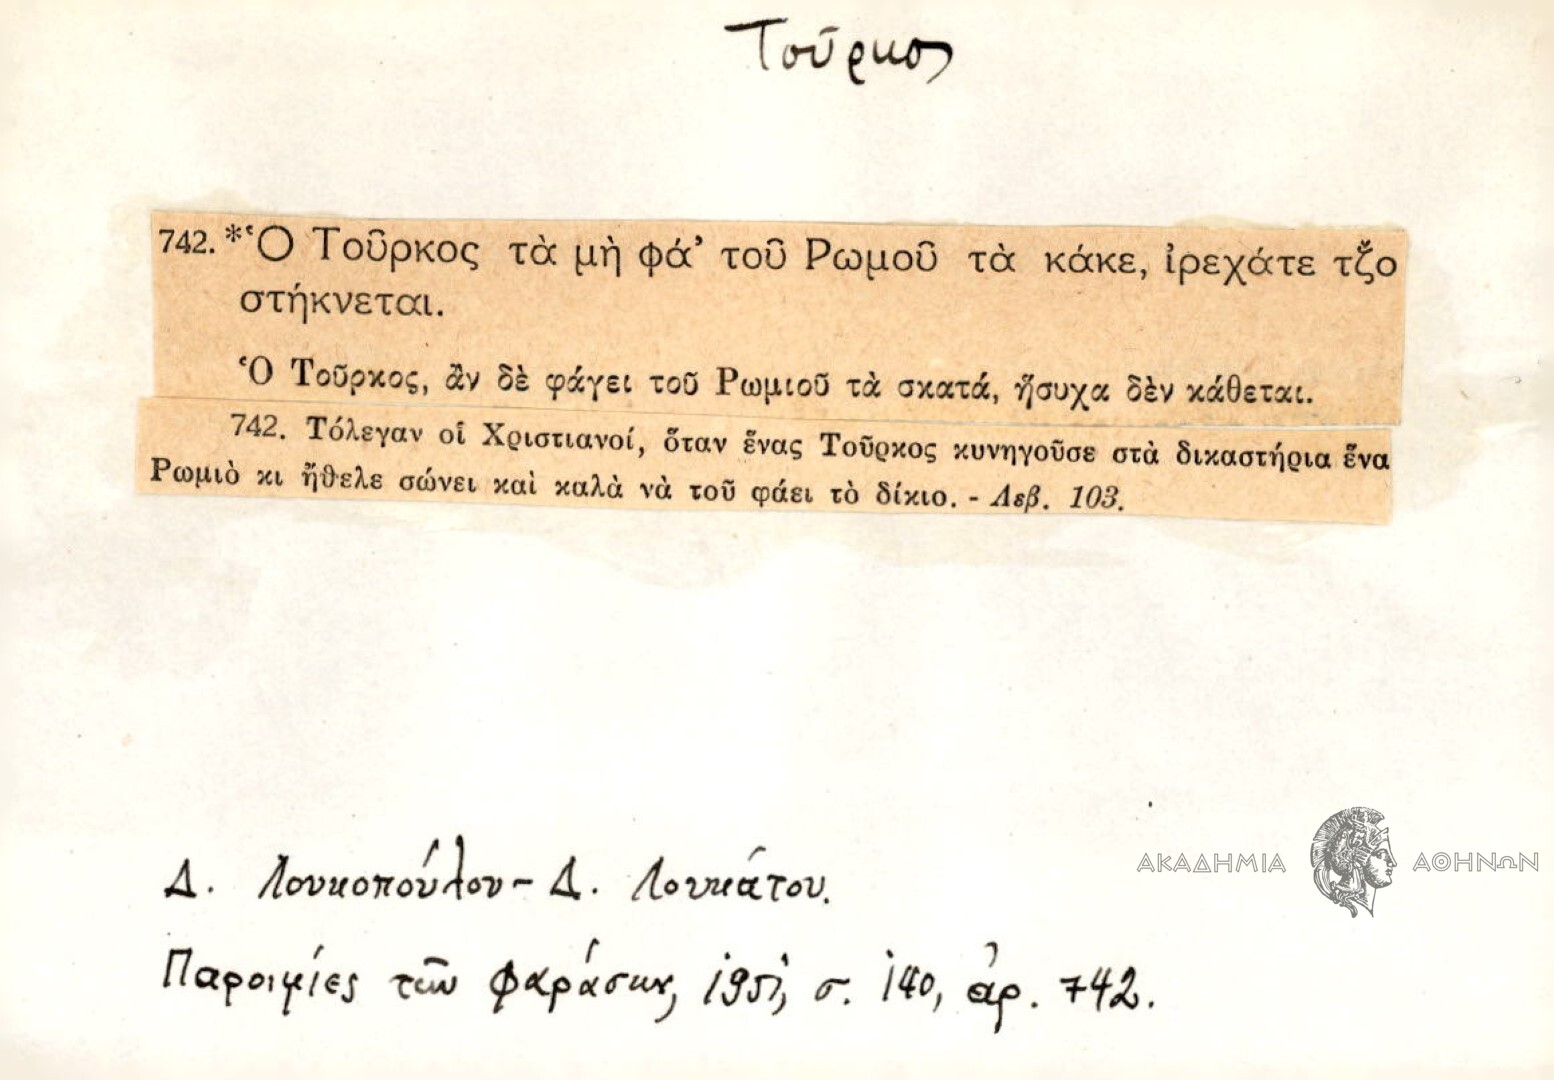 Τοῦρκος
742. *Ὁ Τοῦρκος τὰ μὴ φά' τοῦ Ρωμοῦ τὰ κάκε, ἰρεχάτε τζ̌ο
στήκνεται.
Ὁ Τοῦρκος, ἂν δὲ φάγει τοῦ Ρωμιοῦ τὰ σκατά, ἥσυχα δὲν κάθεται.
742. Τόλεγαν οἱ Χριστιανοί, ὅταν ἕνας Τοῦρκος κυνηγοῦσε στὰ δικαστήρια ἕνα
Ρωμιὸ κι ἤθελε σώνει καὶ καλὰ νὰ τοῦ φάει τὸ δίκιο. - Λεβ. 103.
Δ. Λουκοπούλου - Δ. Λουκάτου.
Παροιμίες τῶν Φαράσων, 1951, σ. 140, ἀρ. 742.
ΑΚΑΔΗΜΙΑ ΑΘΗΝΩΝ